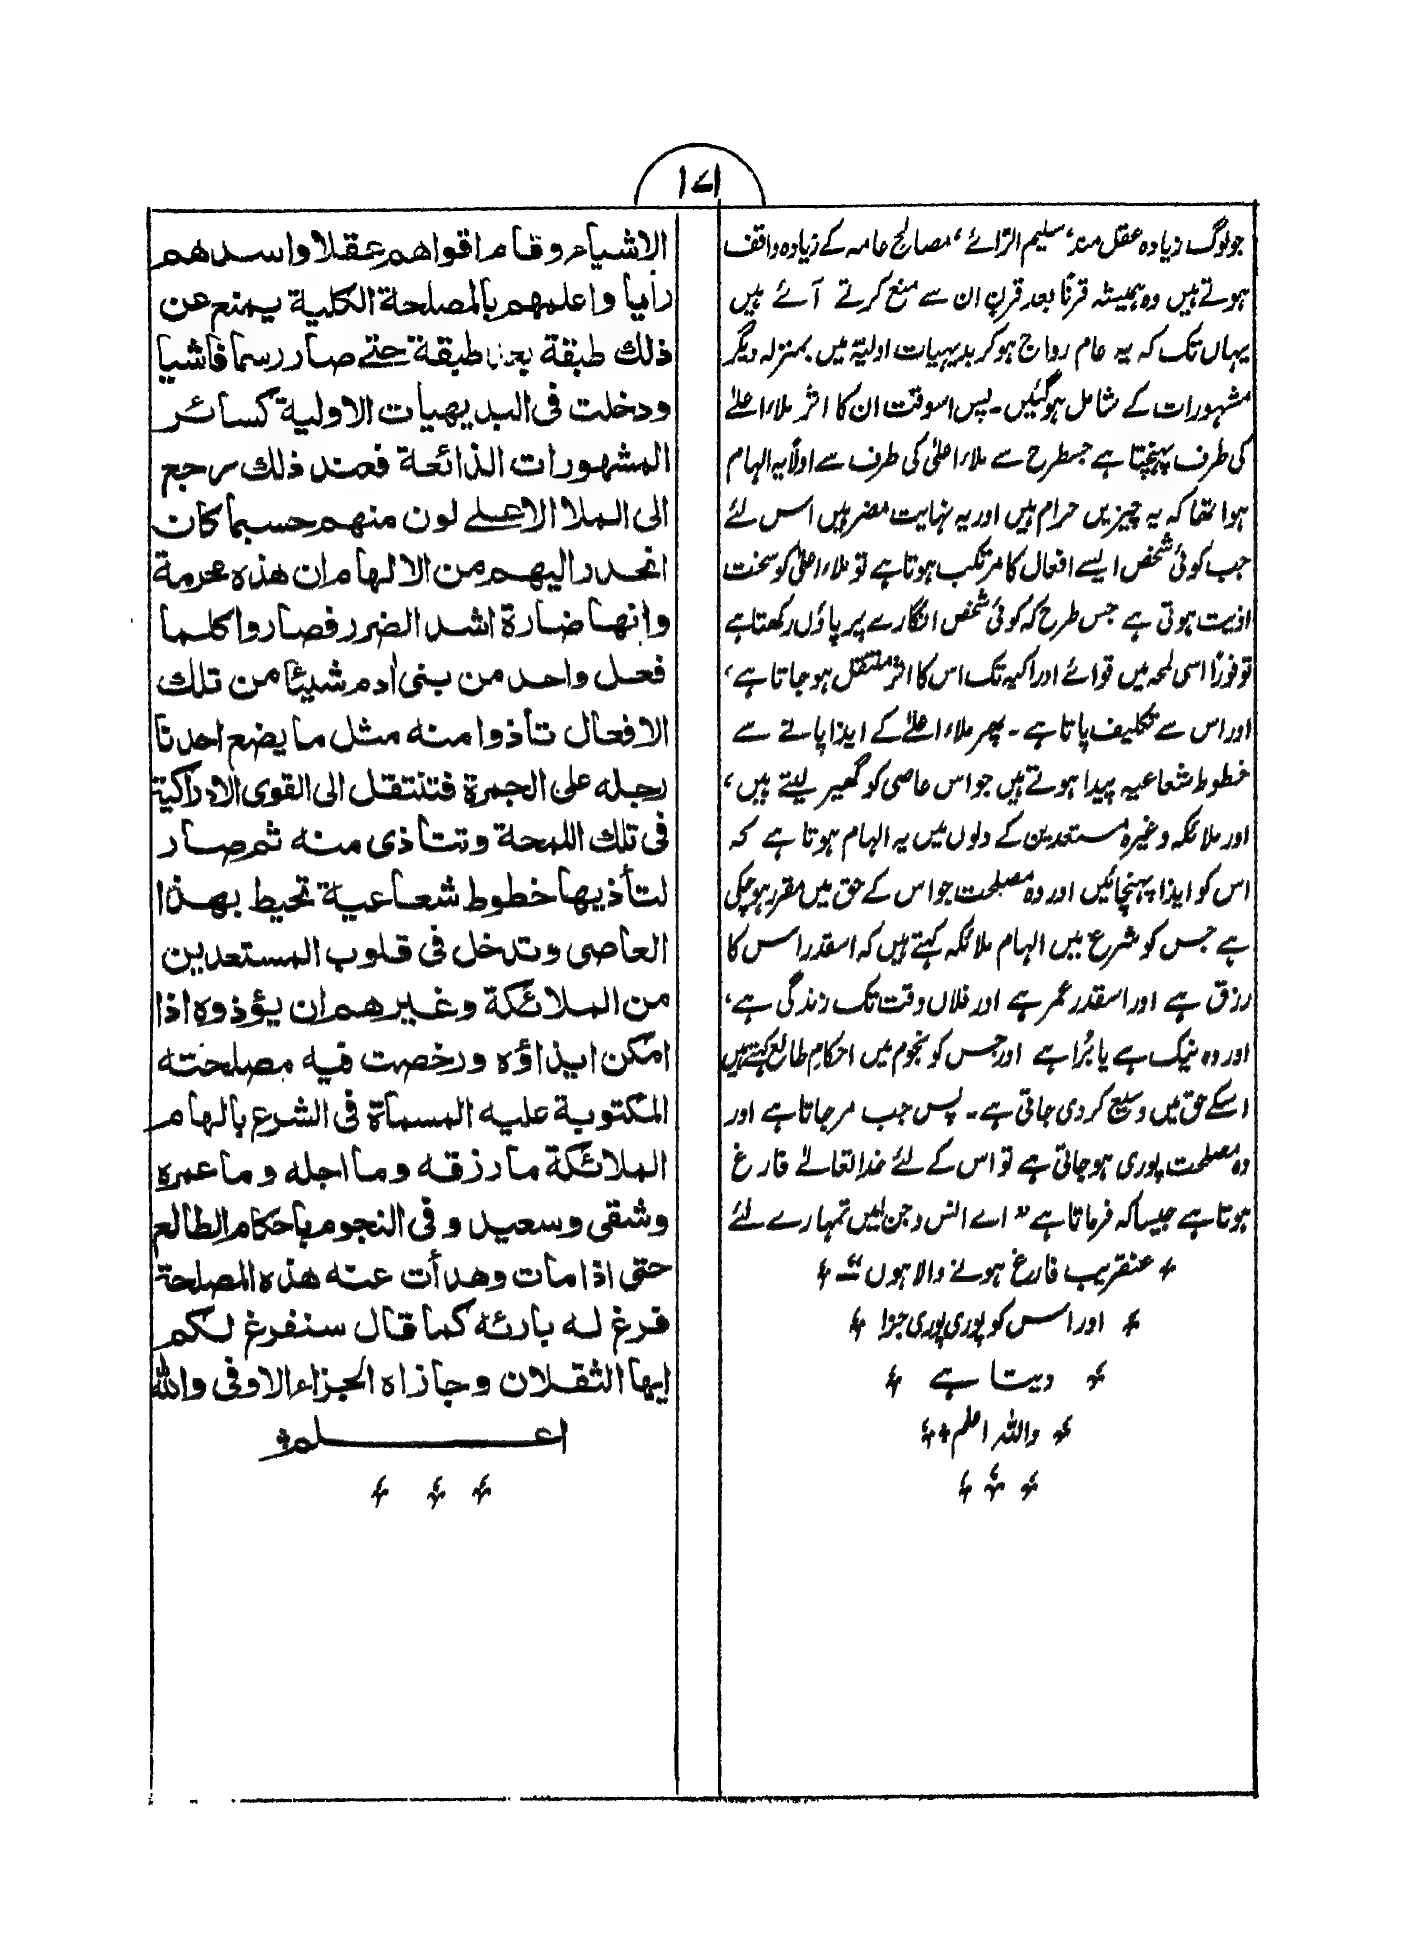 ۱۷۱
جولوگ زیادہ عقل مند، سلیم الرّائے، مصالح عامہ کے زیادہ واقف
ہوتے ہیں وہ ہمیشہ قرناً بعد قرنٍ ان سے منع کرتے آئے ہیں
یہاں تک کہ یہ عام رواج ہو کر بدیہیات اولیۃ میں بمنزلہ دیگر
مشہورات کے شامل ہوگئیں۔ پس اسوقت ان کا اثر ملاء اعلےٰ
کی طرف پہنچتا ہے جسطرح سے ملاء اعلیٰ کی طرف سے اولاً یہ الہام
ہوا تھا کہ یہ چیزیں حرام ہیں اور یہ نہایت مضر ہیں اس لئے
جب کوئی شخص ایسے افعال کا مرتکب ہوتا ہے تو ملاء اعلیٰ کو سخت
اذیت ہوتی ہے جس طرح کہ کوئی شخص انگارے پر پاؤں رکھتا ہے
تو فوراً اسی لمحہ میں قوائے ادراکیہ تک اس کا اثر منتقل ہو جاتا ہے،
اور اس سے تکلیف پاتا ہے۔ پھر ملاء اعلےٰ کے ایذا پانے سے
خطوط شعاعیہ پیدا ہوتے ہیں جو اس عاصی کو گھیر لیتے ہیں،
اور ملائکہ وغیرہ مستعدین کے دلوں میں یہ الہام ہوتا ہے کہ
اس کو ایذا پہنچائیں اور وہ مصلحت جو اس کے حق میں مقرر ہوچکی
ہے جس کو شرع میں الہام ملائکہ کہتے ہیں کہ اسقدر اس کا
رزق ہے اور اسقدر عمر ہے اور فلاں وقت تک زندگی ہے،
اور وہ نیک ہے یا بُرا ہے اور جس کو نجوم میں احکامِ طالع کہتے ہیں
اسکے حق میں وسیع کر دی جاتی ہے۔ پس جب مرجاتا ہے اور
وہ مصلحت پوری ہو جاتی ہے تو اس کے لئے خدا تعالےٰ فارغ
ہوتا ہے جیسا کہ فرماتا ہے "اے انس وجن میں تمہارے لئے
عنقریب فارغ ہونے والا ہوں"
اور اس کو پوری پوری جزا
دیتا ہے
واللہ اعلم
الاشياء وقام اقواهم عقلا واسدهم
رأيا واعلمهم بالمصلحة الكلية يمنع عن
ذلك طبقة بعد طبقة حتے صار رسما فاشيا
ودخلت فى البديهيات الاولية كسائر
المشهورات الذائعة فعند ذلك يرجع
الى الملا الاعلے لون منهم حسبما كان
انحدر اليهم من الالهام ان هذه محرمة
وانها ضارة اشد الضرر فصاروا كلما
فعل واحد من بنى أدم شيئا من تلك
الافعال تأذوا منه مثل ما يضع احدنا
رجله على الجمرة فتنتقل الى القوى الادراكية
فى تلك اللمحة وتتأذى منه ثم صار
لتأذيها خطوط شعاعية تحيط بهذا
العاصى وتدخل فى قلوب المستعدين
من الملائكة وغيرهم ان يؤذوه اذا
امكن ايذاؤه ورخصت فيه مصلحته
المكتوبة عليه المسماة فى الشرع بالهام
الملائكة ما رزقه وما اجله وما عمره
وشقى وسعيد وفى النجوم باحكام الطالع
حتى اذا مات وهدأت عنه هذه المصلحة
فرغ له بارئه كما قال سنفرغ لكم
ايها الثقلان وجازاه الجزاء الاوفى والله
اعلم